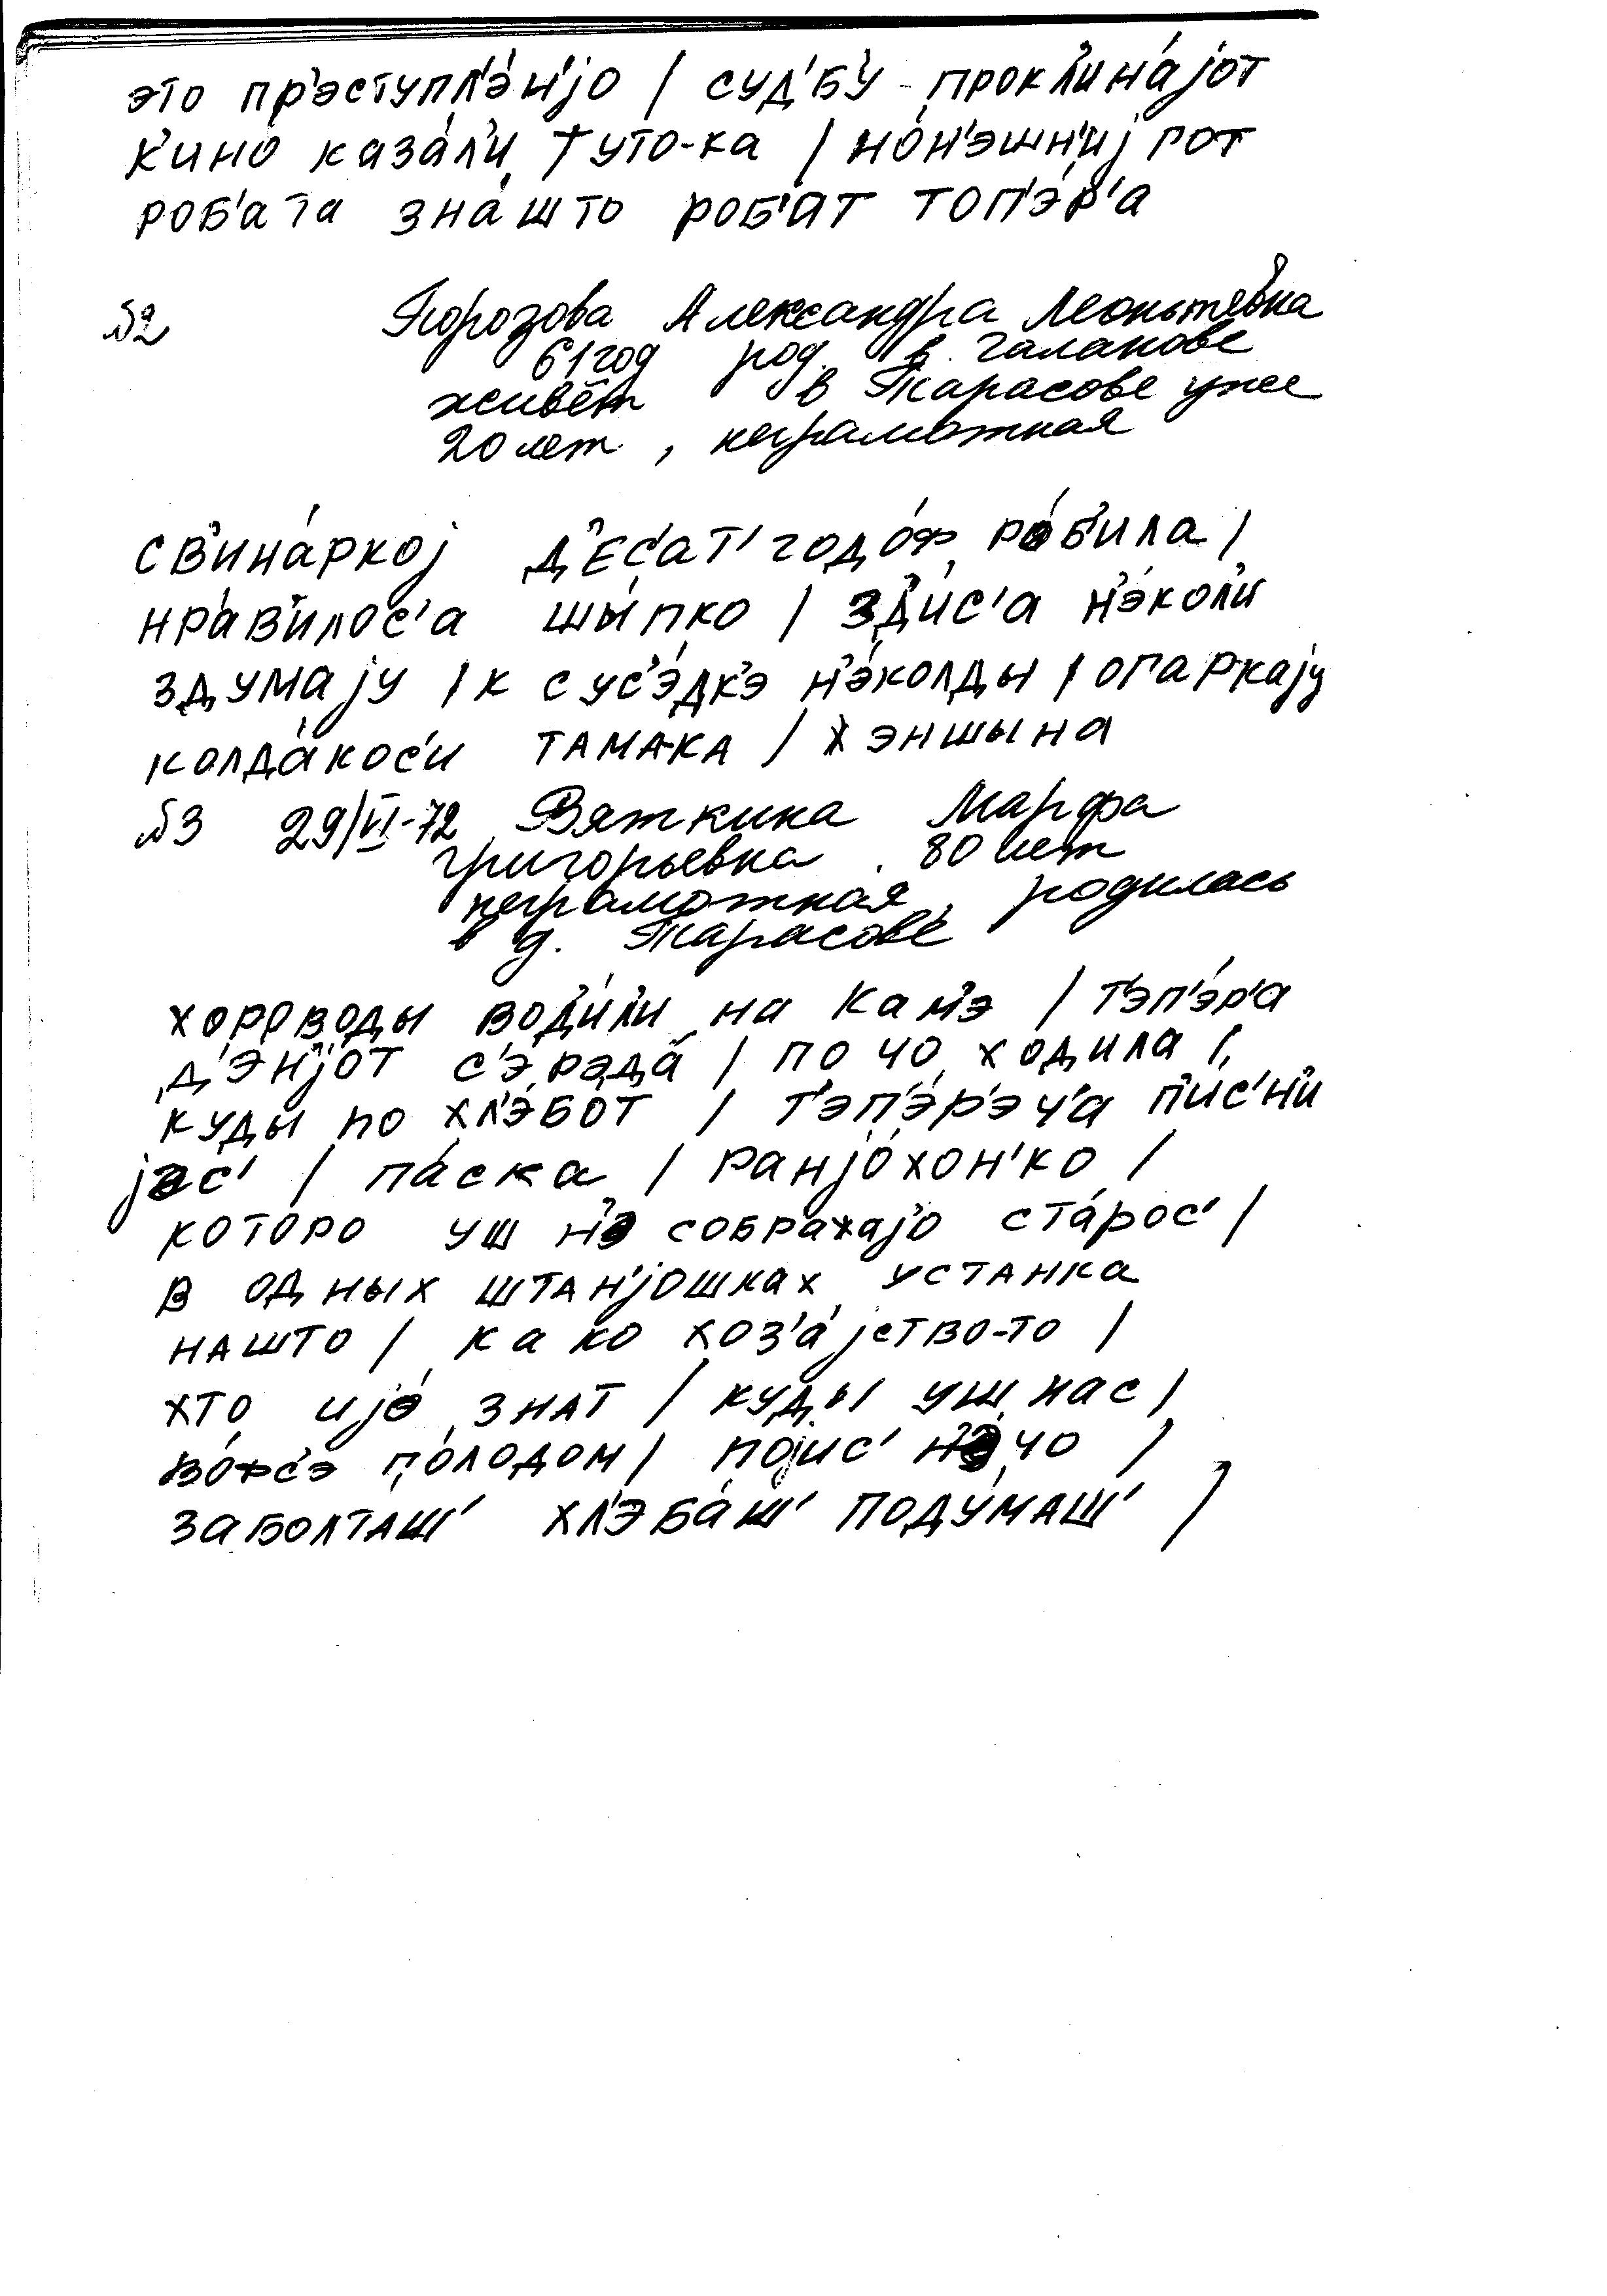 это пр'эступл'э́н'јо / суд'бу́ проклина́јот
к'ино́ каза́л'и туто-ка / но́н'эшн'иј гот
роб'ата зна́што роб'ат топ'э́р'а
№2 Порозова Александра Леонтьевна
61 год род. в Галанове
живёт в Тарасове уже
20 лет, неграмотная
св'ина́ркој д'ес'ат' годо́ф ро́б'ила /
нра́в'илос'а шы́пко / з'д'и́с'а н'э́кол'и
здумају / к сус'э́дк'э н'э́колды / опаркају
колда́кос'и тамака / жэншына
№3 29/VI-72 Вяткина Марфа
Григорьевна. 80 лет
неграмотная, родилась
в д. Тарасове
хороводы вод'и́л'и на кам'э / т'эп'э́р'а
д'энјо́т с'э́рэда́ / по чо ходила /
куды по хл'э́бот / т'эп'э́р'эч'а п'ис'н'и
јэс' / па́ска / ранјо́хон'ко /
которо уш н'э соображајо ста́рос' /
в одных штан'јошках устанка
нашто / како хоз'а́јство-то /
хто ијо́ знат / куды уш нас /
во́фс'э го́лодом / појис' н'э́чо /
заболташ' хл'эба́ш' поду́маш' /